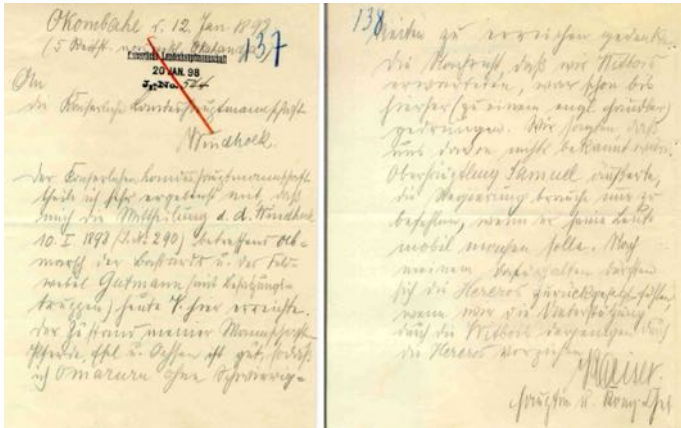 Okombahe d. 12. Jan 1898
137
Kaiserliche Landeshauptmannschaft
20 JAN. 98
J. No. 524
An
die Kaiserliche Landeshauptmannschaft
Windhoek.
Der Kaiserlichen Landeshauptmannschaft
theile ich sehr ergebenst mit, daß
mich die Mittheilung d. d. Windhoek
10. I 1898 (J. No 290) betreffend Ab-
marsch der Bastards u. des Feld-
webel Gutmann (und Besatzungs-
truppen) heute hier erreichte.
Der Zustand meiner Mannschaft
Pferde, Esel u. Ochsen ist gut, sodaß
ich Omaruru ohne Schwierig-
138
keiten zu erreichen gedenke.
Die Nachricht, daß wir Witbois
erwarteten, war schon bis
hierher (zu einem engl. Händler)
gedrungen. Wir sagten daß
uns davon nichts bekannt wäre.
Oberhäuptling Samuel äußerte,
die Regierung brauche nur zu
befehlen, wenn er seine Leute
mobil machen solle. Nach
meinem dürften
sich die Hereros zurückgesetzt fühlen,
wenn wir die Unterstützung
durch die Witbois derjenigen durch
die Hereros vorziehen.
Kaiser.
Hauptm. u. Komp. Chef